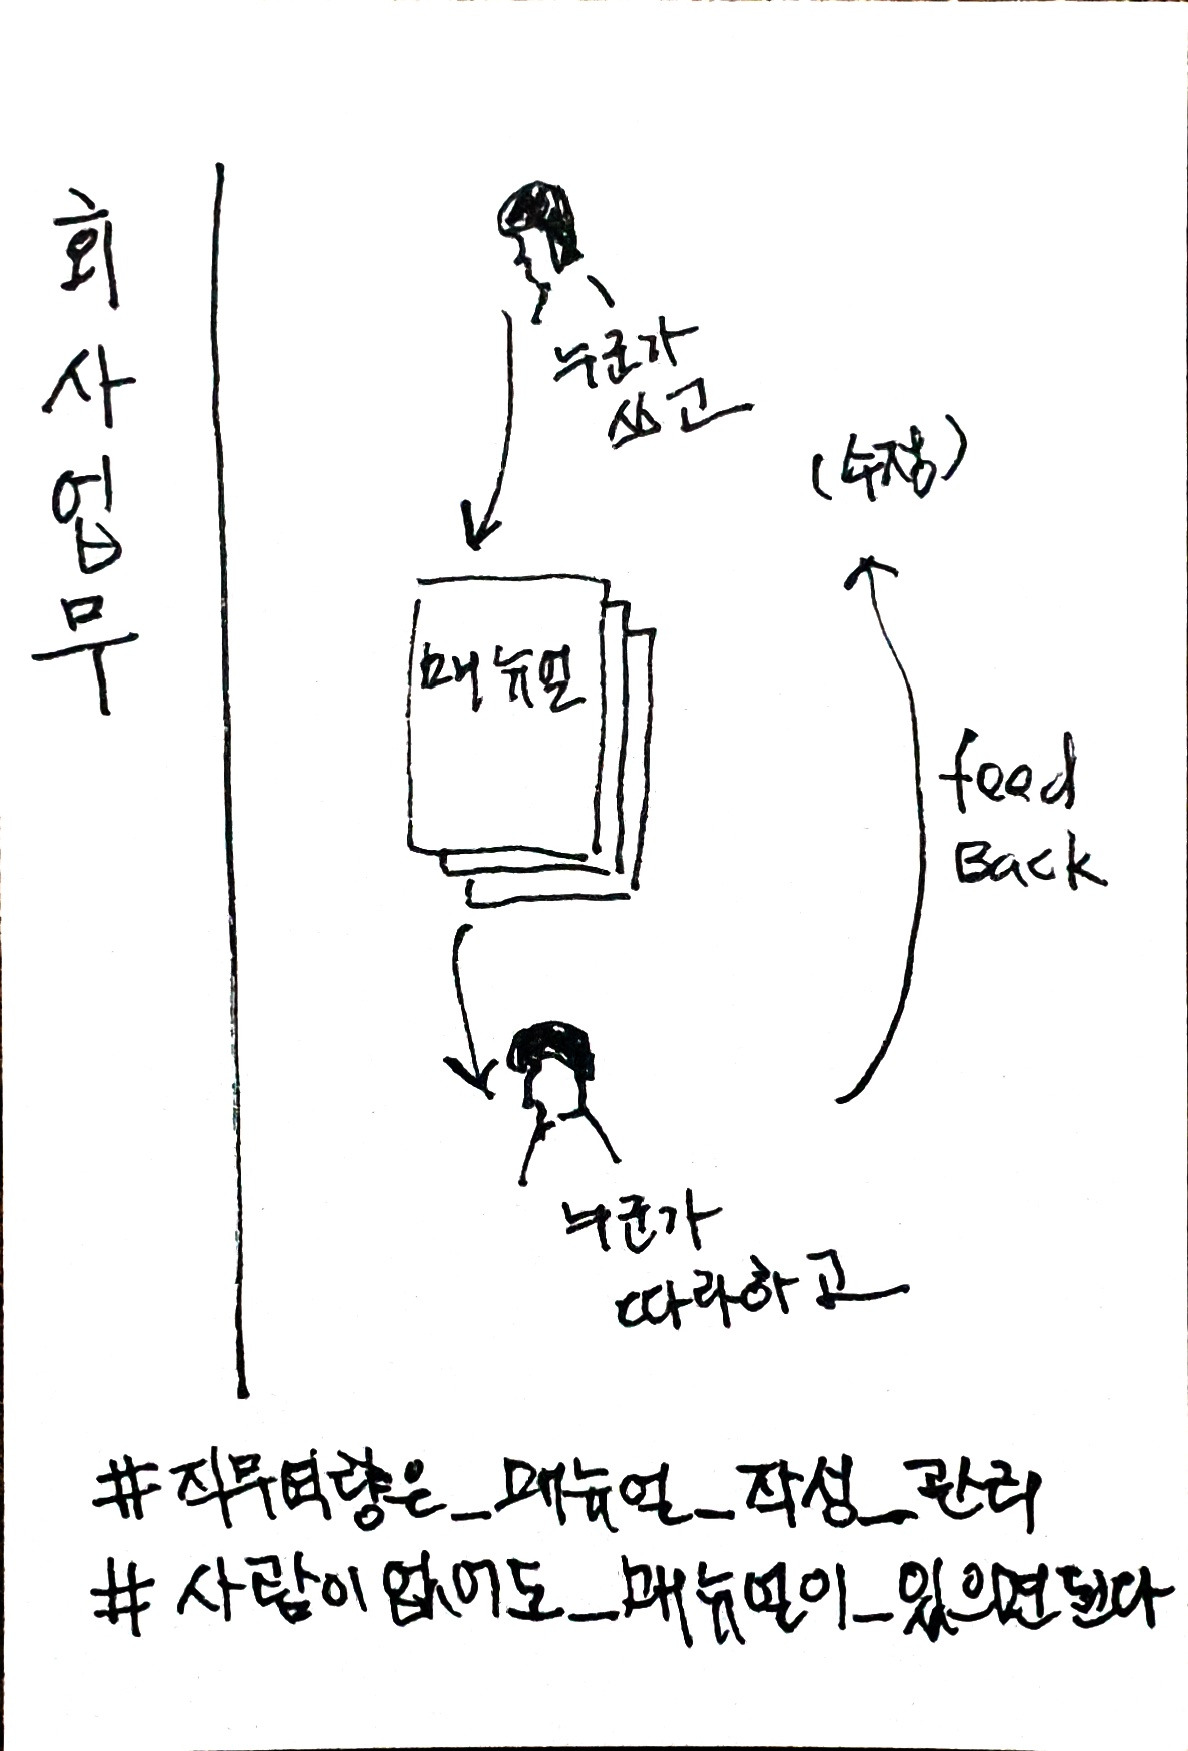 회사업무
누군가
쓰고
(수정)
매뉴얼
feed
Back
누군가
따라하고
#직무역량은_매뉴얼_작성_관리
#사람이없어도_매뉴얼이_있으면된다